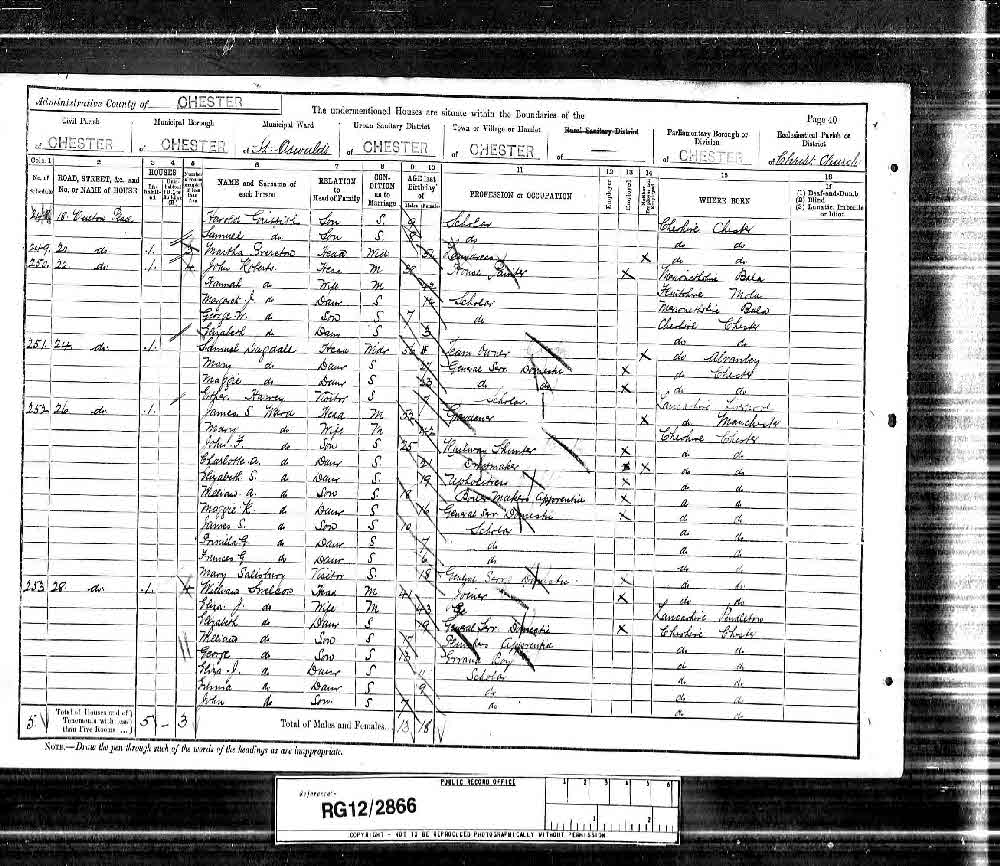 Administrative County of CHESTER
The undermentioned Houses are situate within the Boundaries of the
Page 40
Civil Parish of CHESTER
Municipal Borough of CHESTER
Municipal Ward of St. Oswalds
Urban Sanitary District of CHESTER
Town or Village or Hamlet of CHESTER
Rural Sanitary District of
Parliamentary Borough or Division of CHESTER
Ecclesiastical Parish or District of Christ Church
Cols. 1 2 3 4 5 6 7 8 9 10 11 12 13 14 15 16
No. of Schedule
ROAD, STREET, &c., and No. or NAME of HOUSE
HOUSES
NAME and Surname of each Person
RELATION to Head of Family
CON-DITION as to Marriage
AGE last Birthday of
Males Females
PROFESSION or OCCUPATION
Employer
Employed
WHERE BORN
(1) Deaf-and-Dumb
(2) Blind
(3) Lunatic, Imbecile or Idiot
18 Harold Son S 9 Scholar Cheshire Chester
Samuel do Son S do do do
249 20 do 1 Martha Head Wid do do
250 22 do 1 4 John Roberts Head M House Painter X Merionethshire Bala
Hannah do Wife M Flintshire Mold
Margaret J. do Daur S Scholar Merionethshire Bala
George W. do Son S 7 do Cheshire Chester
Elizabeth do Daur S 3 do do
251 24 do 1 Samuel Dugdale Head Widr 56 Team Owner X do Alvanley
Mary do Daur S General Serv Domestic X do Chester
Maggie do Daur S do do X do do
Harvey Visitor S Scholar Lancashire
252 26 do 1 James S. Ward Head M 53 Gardener X do Manchester
Mary do Wife M Cheshire Chester
John F. do Son S 25 Railway Shunter X do do
Charlotte A. do Daur S 21 Dressmaker X X do do
Elizabeth S. do Daur S 19 Upholstress X do do
William A. do Son S 18 Apprentice X do do
Maggie K. do Daur S 16 General Serv Domestic X do do
James S. do Son S 10 Scholar do do
do Daur S 7 do do do
Frances G do Daur S 6 do do
Mary Salisbury Visitor S 18 General Serv Domestic X do do
253 28 do 1 4 William Head M 41 Joiner X do do
Eliza J. do Wife M 43 Lancashire Pendleton
Elizabeth do Daur S 19 General Serv Domestic X Cheshire Chester
William do Son S 15 Apprentice do do
George do Son S 13 Errand Boy do do
Eliza J. do Daur S 11 Scholar do do
do Daur S 9 do do do
John do Son S 7 do do do
5 Total of Houses and of Tenements with less than Five Rooms 5 - 3 Total of Males and Females 13 18
NOTE.—Draw the pen through such of the words of the headings as are inappropriate.
PUBLIC RECORD OFFICE
Reference:-
RG12/2866
1 2 3 4 5 6
1 2
COPYRIGHT - NOT TO BE REPRODUCED PHOTOGRAPHICALLY WITHOUT PERMISSION